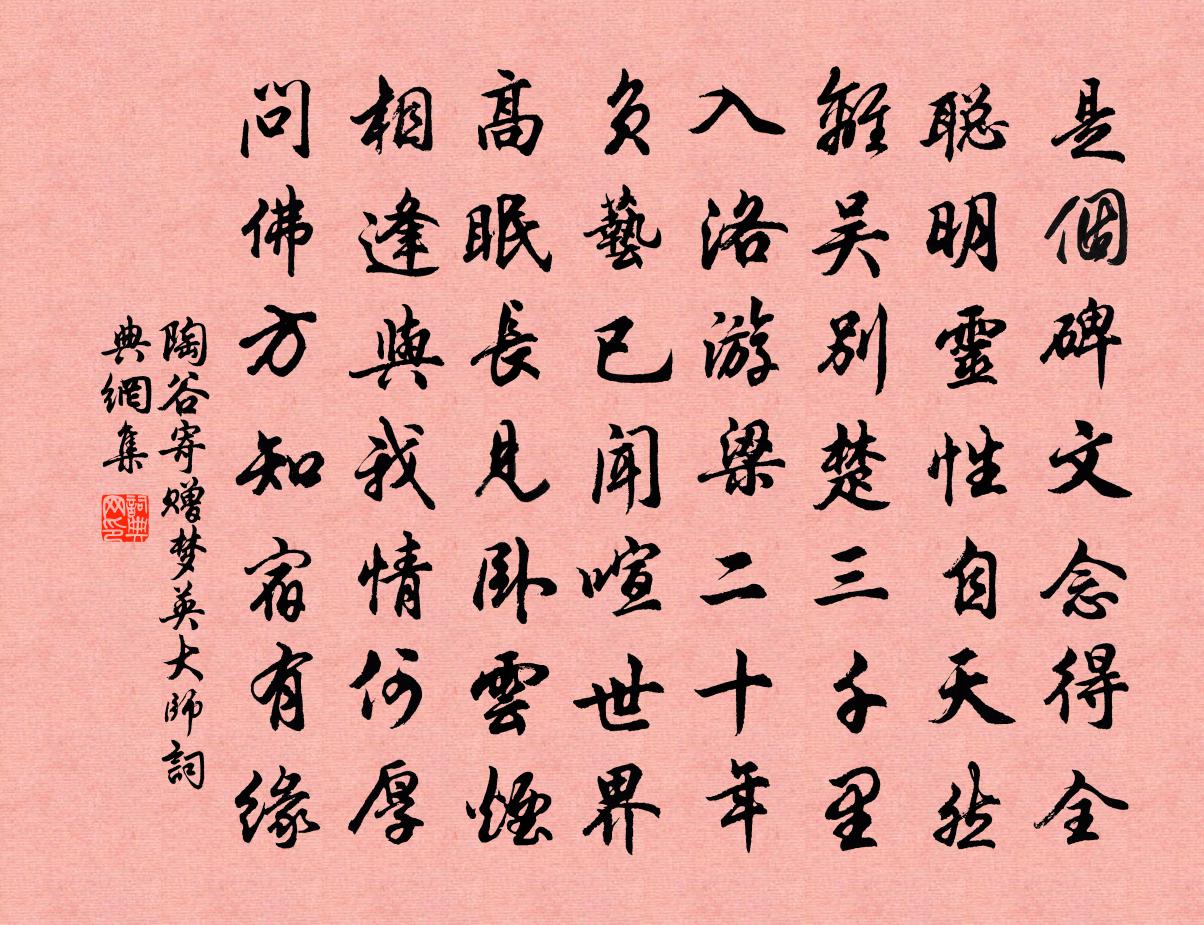 是個碑文念得全
聡明靈性自天然
離吴别楚三千里
入洛游梁二十年
負藝已聞喧世界
高眠長見卧雲煙
相逢與我情何厚
問佛方知宿有緣
陶谷寄赠梦英大師詞
典網集
詞典网印